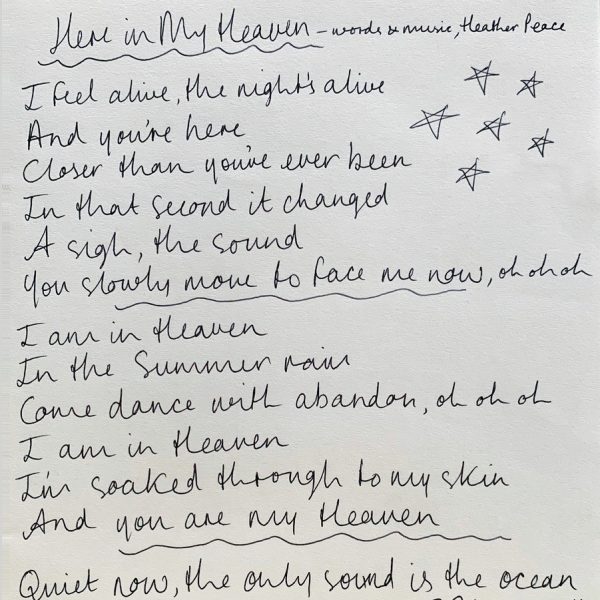 Here in My Heaven - words & music, Heather Peace
I feel alive, the night's alive
And you're here
Closer than you've ever been
In that second it changed
A sigh, the sound
You slowly move to face me now, oh oh oh
I am in Heaven
In the Summer rain
Come dance with abandon, oh oh oh
I am in Heaven
I'm soaked through to my skin
And you are my Heaven
Quiet now, the only sound is the ocean